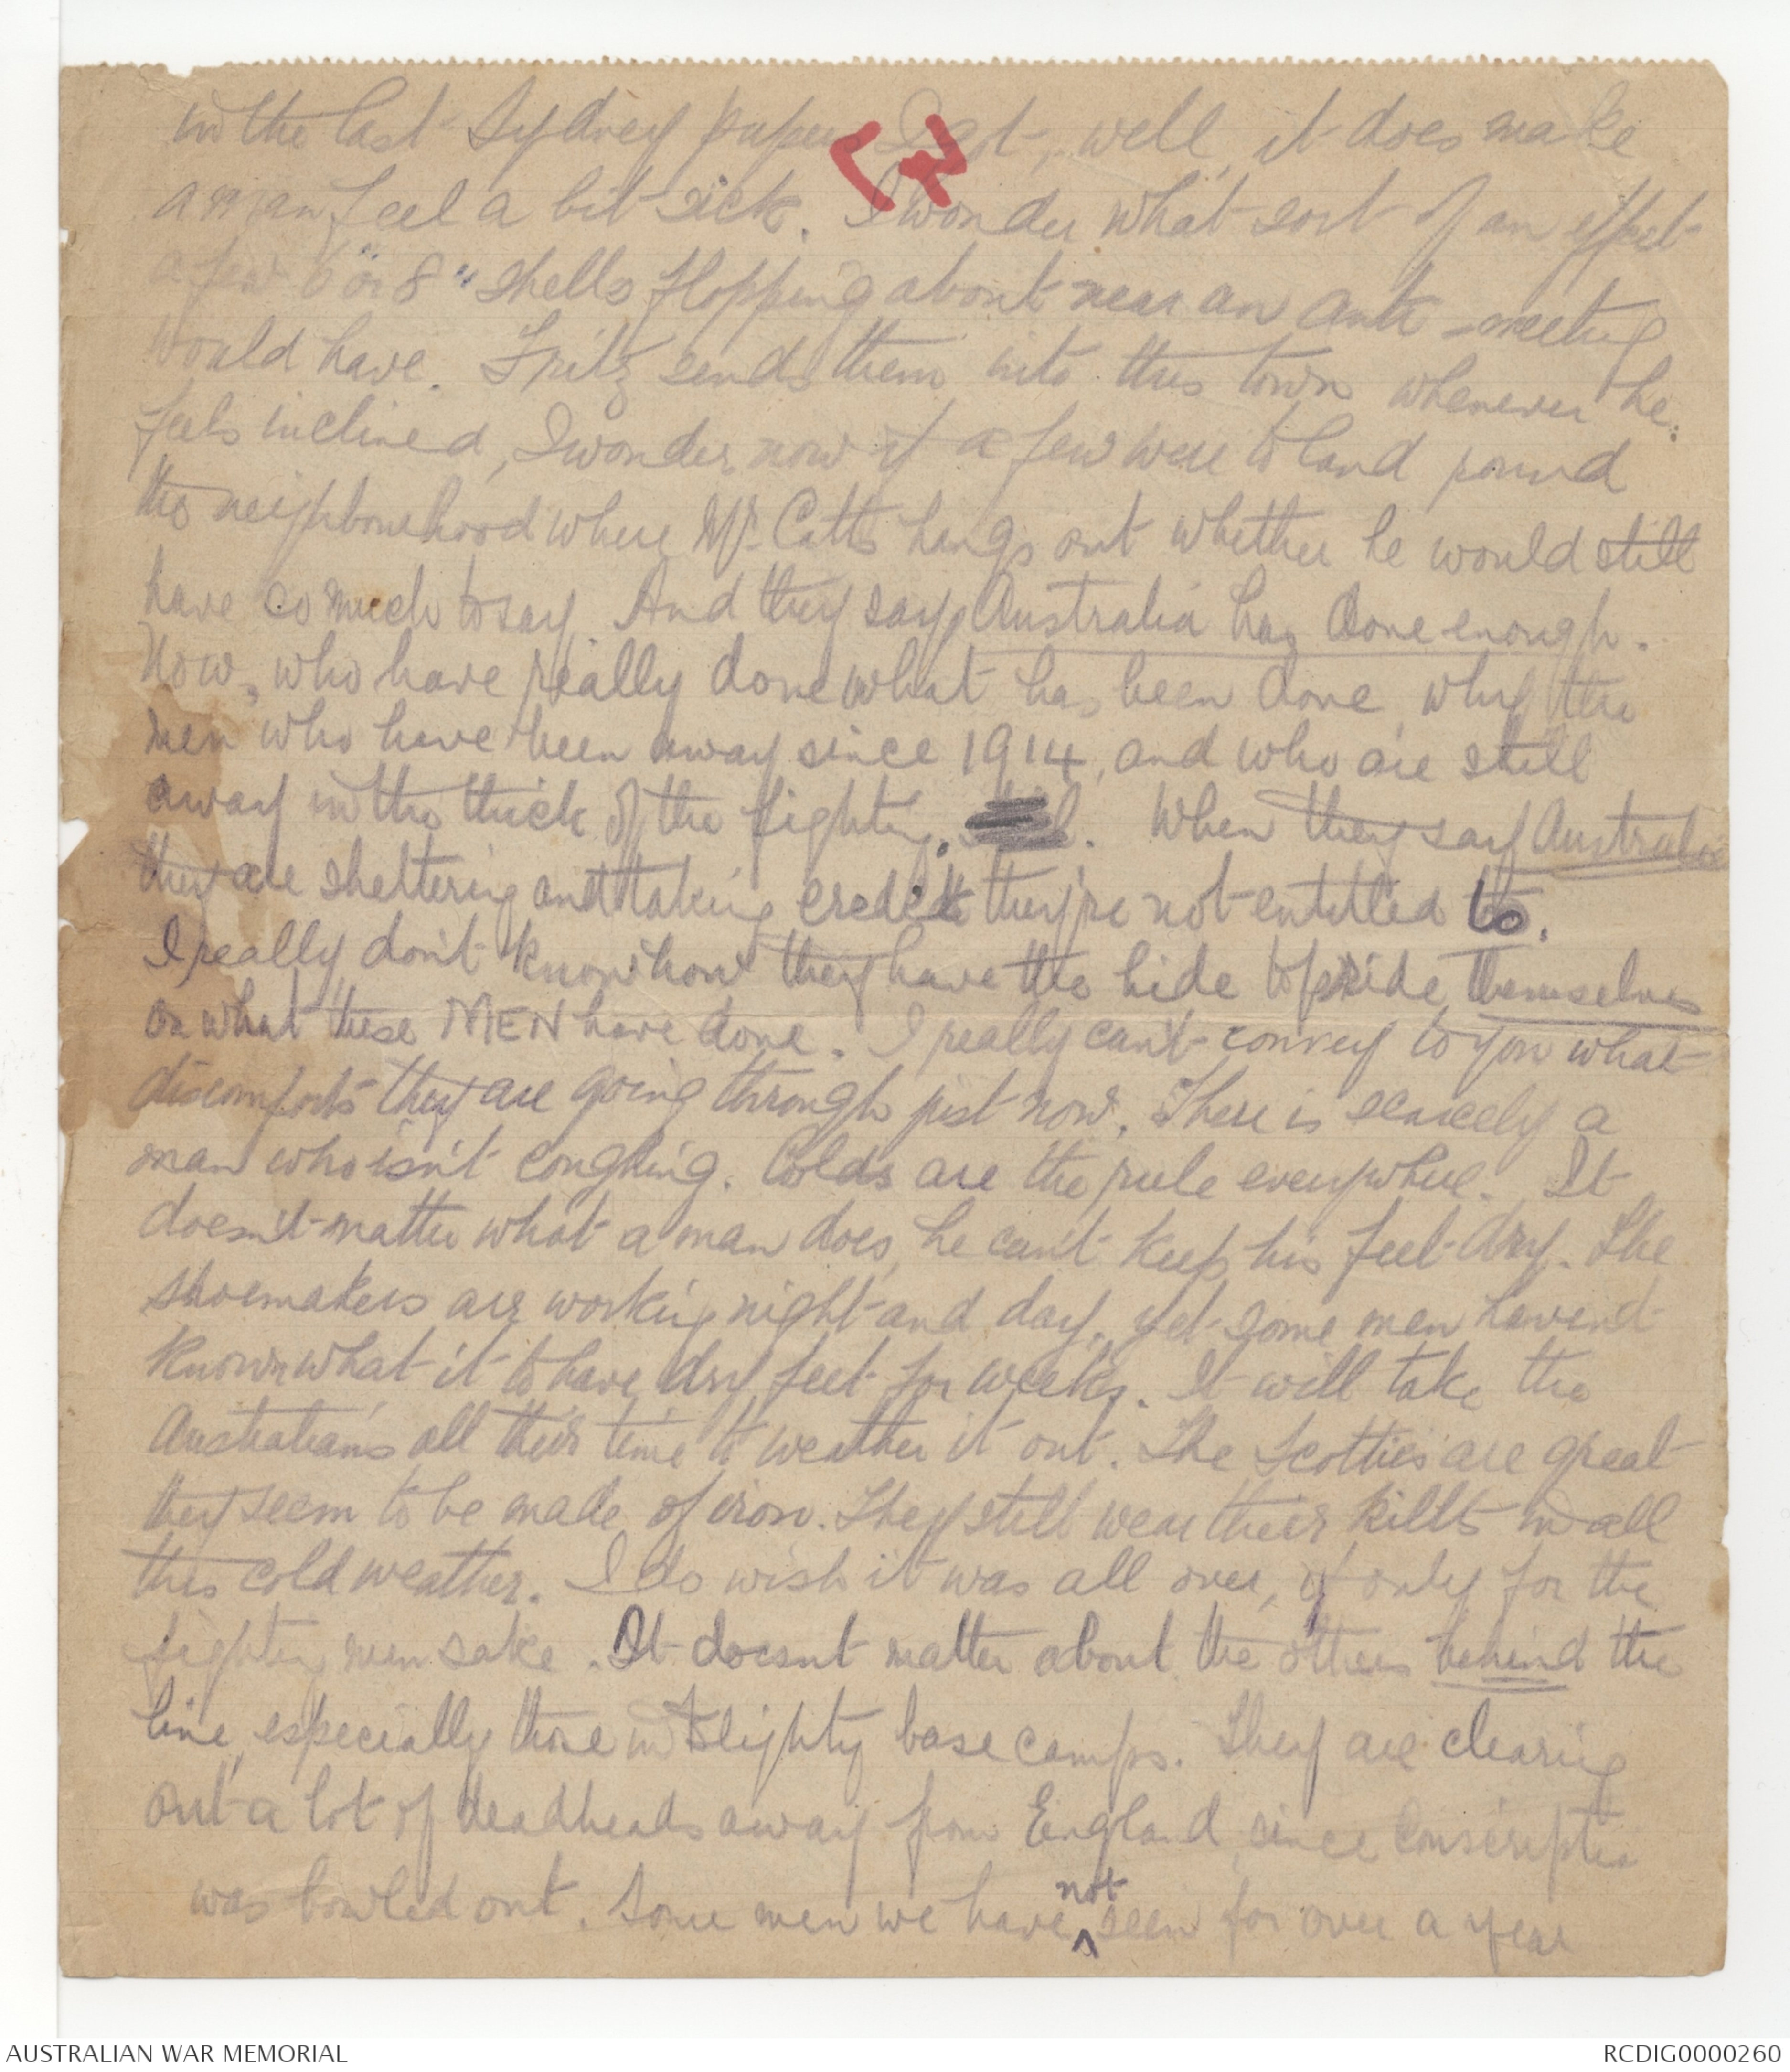 in the last Sydney papers I got, well, it does make
a man feel a bit sick. I wonder what sort of an effect
a few 6 or 8" shells flopping about near an anti-meeting
would have. Fritz sends them into this town whenever he
feels inclined, I wonder now if a few were to land round
the neighbourhood where Mr. Catts hangs out whether he would still
have so much to say. And they say, Australia has done enough.
Now, who have really done what has been done, why the
men who have been away since 1914, and who are still
away in the thick of the fighting. When they say Australia
they are sheltering and taking credit they're not entitled to.
I really don't know how they have the hide to pride themselves
on what these MEN have done. I really can't convey to you what
discomforts they are going through just now. There is scarcely a
man who isn't coughing. Colds are the rule everywhere. It
doesn't matter what a man does, he can't keep his feet dry. The
shoemakers are working night and day, yet some men havent
known what it to have dry feet for weeks. It will take the
Australians all their time to weather it out. The Scotties are great
they seem to be made of iron. They still wear their kilts in all
this cold weather. I do wish it was all over, if only for the
fighting men sake. It doesnt matter about the others behind the
line, especially those in Blighty base camps. They are clearing
out a lot of deadheads away from England, since Conscription
was bowled out. Some men we have not seen for over a year
AUSTRALIAN WAR MEMORIAL
RCDIG0000260